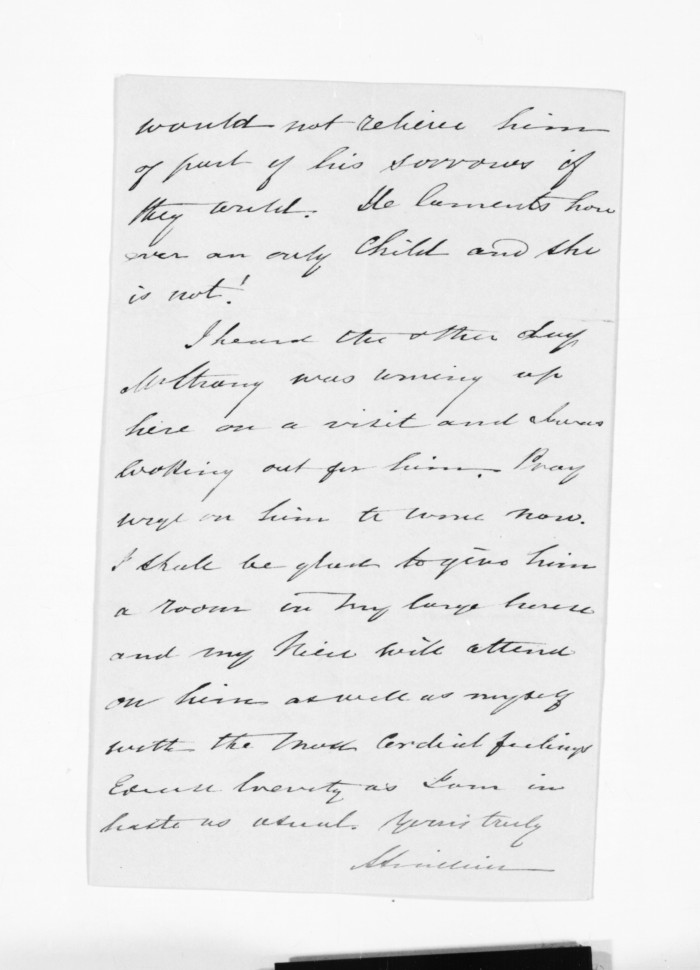 would not relieve him
of part of his sorrows if
they could. He laments how
ever an only Child and she
is not!
I heard the other day
Mr Strang was coming up
here on a visit and I was
looking out for him. Pray
urge on him to come now.
I shall be glad to give him
a room in my large house
and my Niece will attend
on him as well as myself
with the most Cordial feelings
Excuse brevity as I am in
haste as usual. Yours truly